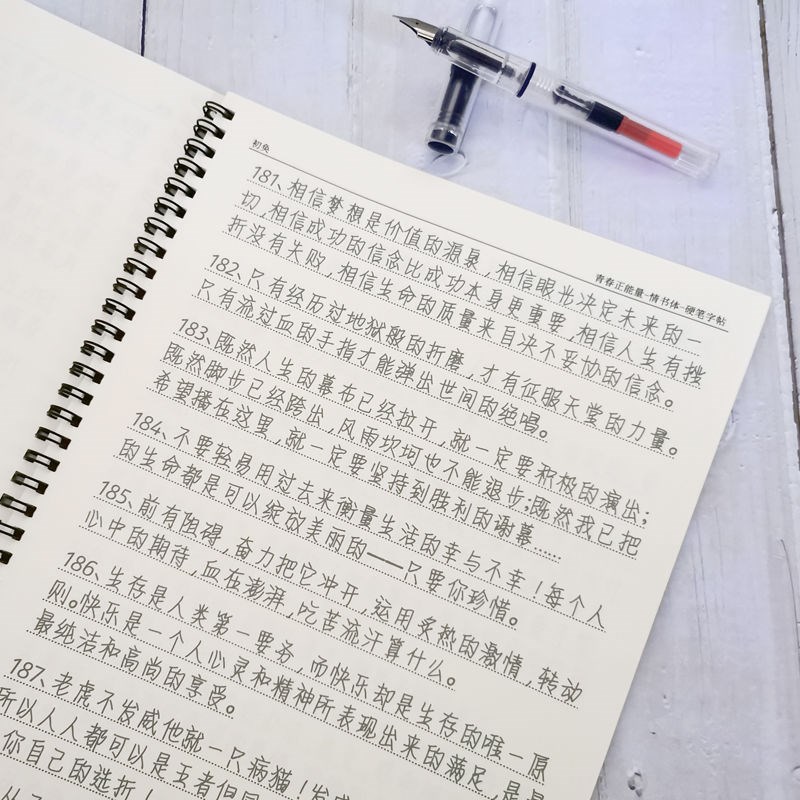 初奂
青春正能量-情书体-硬笔字帖
181、相信梦想是价值的源泉，相信眼光决定未来的一
切，相信成功的信念比成功本身更重要，相信人生有挫
折没有失败，相信生命的质量来自决不妥协的信念。
182、只有经历过地狱般的折磨，才有征服天堂的力量。
只有流过血的手指才能弹出世间的绝唱。
183、既然人生的幕布已经拉开，就一定要积极的演出；
既然脚步已经跨出，风雨坎坷也不能退步；既然我已把
希望播在这里，就一定要坚持到胜利的谢幕……
184、不要轻易用过去来衡量生活的幸与不幸！每个人
的生命都是可以绽放美丽的——只要你珍惜。
185、前有阻碍，奋力把它冲开，运用炙热的激情，转动
心中的期待，血在澎湃，吃苦流汗算什么。
186、生存是人类第一要务，而快乐却是生存的唯一原
则。快乐是一个人心灵和精神所表现出来的满足，是最
最纯洁和高尚的享受。
187、老虎不发威他就一只病猫！发威
所以人人都可以是王者但
你自己的选折！